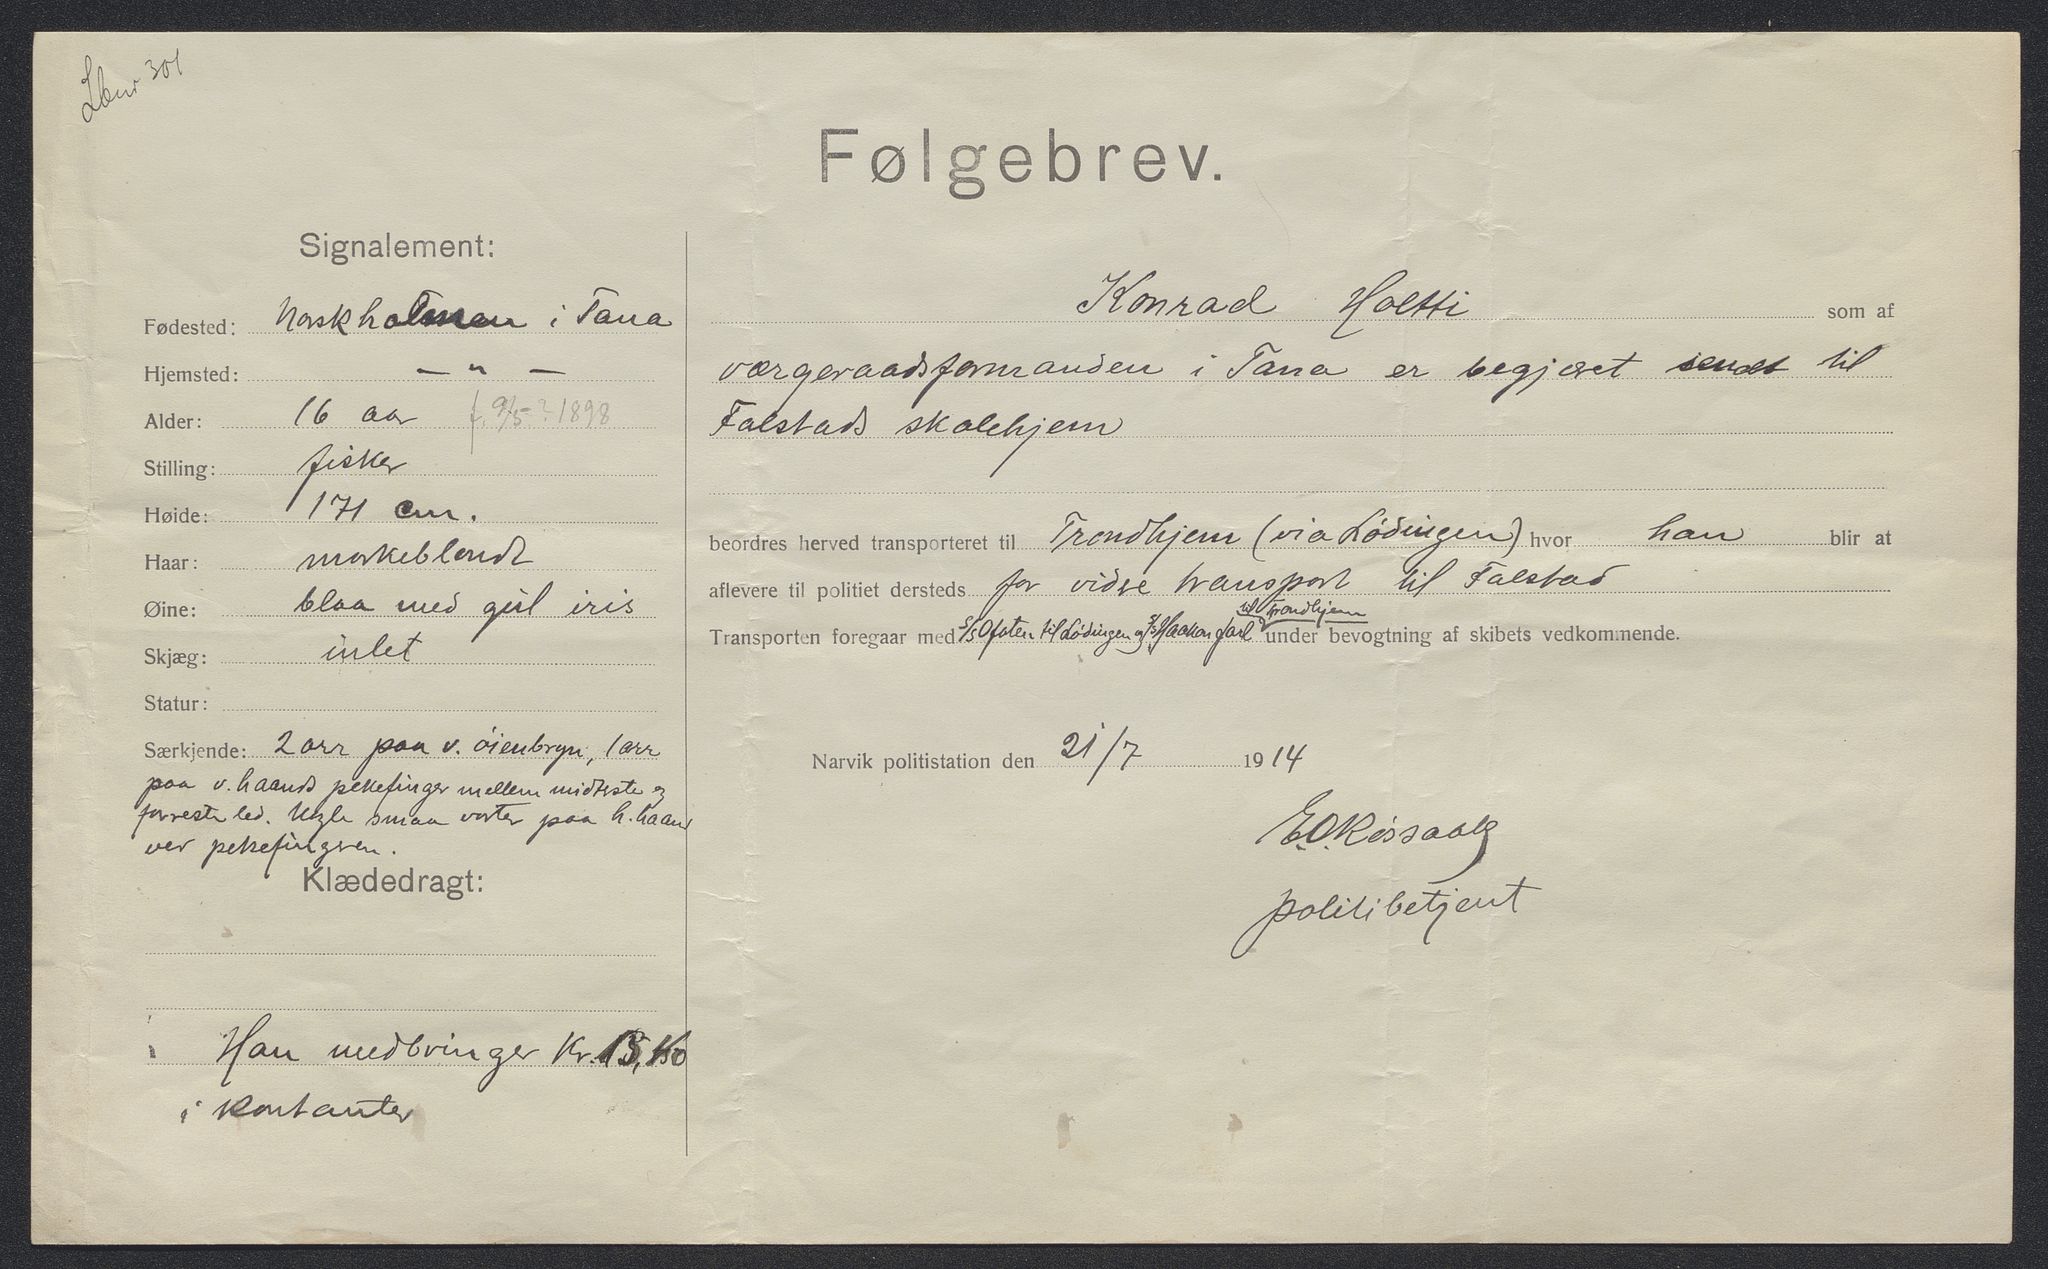 301
Følgebrev.
Signalement:
Fødested: Norskholmen i Tana
Hjemsted: — " —
Alder: 16 aar f. 9/5 ? 1898
Stilling: fisker
Høide: 171 cm.
Haar: mørkeblondt
Øine: blaa med gul iris
Skjæg: intet
Statur:
Særkjende: 2 arr paa v. øienbryn, 1 arr
paa v. haands pekefinger mellem midterste og
forreste led. Nogle smaa vorter paa h. haand
ver pekefingren.
Klædedragt:
Han medbringer Kr.
i kontanter
Konrad Holtti som af
værgeraadsformanden i Tana er begjæret sendt til
Falstads skolehjem
beordres herved transporteret til Trondhjem (via Lødingen) hvor han blir at
aflevere til politiet dersteds for vidre transport til Falstad
til Trondhjem
Transporten foregaar med S/S Ofoten til Lødingen og S/S Haakon Jarl under bevogtning af skibets vedkommende.
Narvik politistation den 21/7 1914
E.O.
politibetjent